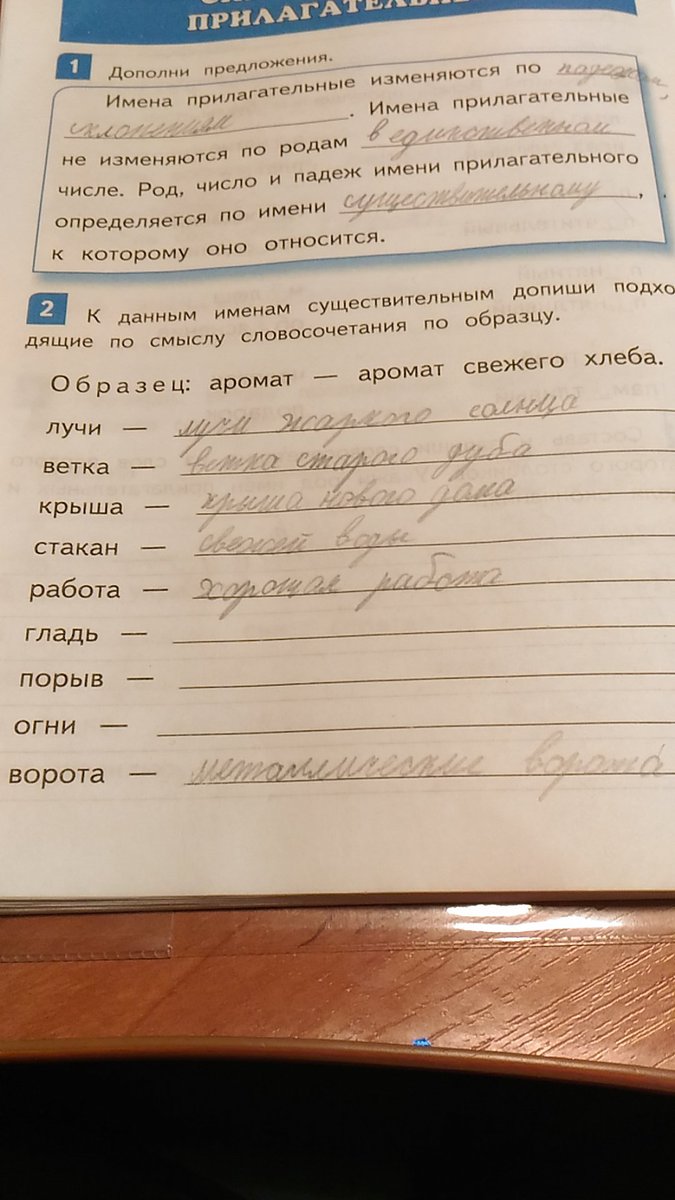 ПРИЛАГАТЕЛЬН
1 Дополни предложения.
Имена прилагательные изменяются по падежам,
склонениям. Имена прилагательные
не изменяются по родам в единственном
числе. Род, число и падеж имени прилагательного
определяется по имени существительному,
к которому оно относится.
2 К данным именам существительным допиши подхо-
дящие по смыслу словосочетания по образцу.
Образец: аромат — аромат свежего хлеба.
лучи — лучи жаркого солнца
ветка — ветка старого дуба
крыша — крыша нового дома
стакан — свежей воды
работа — хорошая работа
гладь —
порыв —
огни —
ворота — металлические ворота